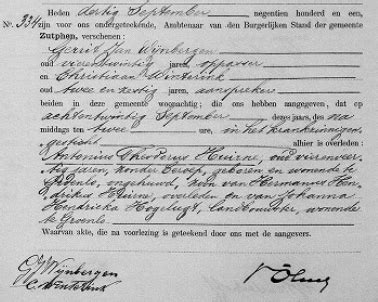 Heden dertig September negentien honderd en een,
N°. 334 zijn voor ons ondergeteekende, Ambtenaar van den Burgerlijken Stand der gemeente
Zutphen, verschenen:
Gerrit Jan Wijnbergen
oud vierentwintig jaren, oppasser
en Christiaan Winterink
oud twee en zestig jaren, aanspreker
beiden in deze gemeente woonachtig; die ons hebben aangegeven, dat op
achtentwintig September dezes jaars, des na
middags ten twee ure, in het krankzinnigen
gesticht alhier is overleden:
Antonius Theodorus Huirne, oud vierenveer
tig jaren, zonder beroep, geboren en wonende te
Groenlo, ongehuwd, zoon van Hermannus Hen
drikus Huirne, overleden en van Johanna
Hendrieka Hogelugt, landbouwster, wonende
te Groenlo.
Waarvan akte, die na voorlezing is geteekend door ons met de aangevers.
G J Wijnbergen
C. Winterink